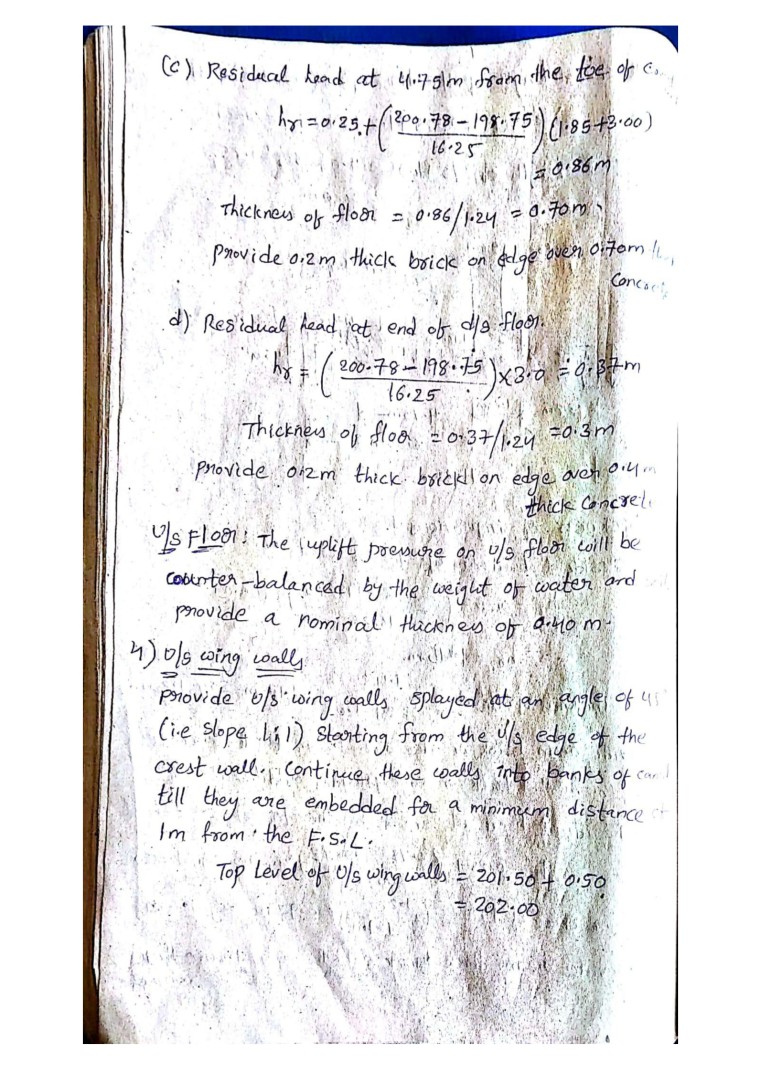 (c) Residual head at 4.75m from the toe of c.
hr = 0.25 + (200.78 - 198.75 / 16.25) (1.85+3.00)
= 0.86m
Thickness of floor = 0.86/1.24 = 0.70m
Provide 0.2m thick brick on edge over 0.70m
Concrete
d) Residual head at end of d/s floor.
hr = (200.78 - 198.75 / 16.25) x 3.0 = 0.37m
Thickness of floor = 0.37/1.24 = 0.3m
provide 0.2m thick brick on edge over 0.4m
thick concrete
U/s Floor: The uplift pressure on u/s floor will be
counter-balanced by the weight of water and
provide a nominal thickness of 0.40 m.
4) U/s wing walls
provide U/s wing walls splayed at an angle of 45
(i.e slope 1:1) starting from the u/s edge of the
crest wall. Continue these walls into banks of canal
till they are embedded for a minimum distance of
1m from the F.S.L.
Top Level of U/s wing walls = 201.50 + 0.50
= 202.00